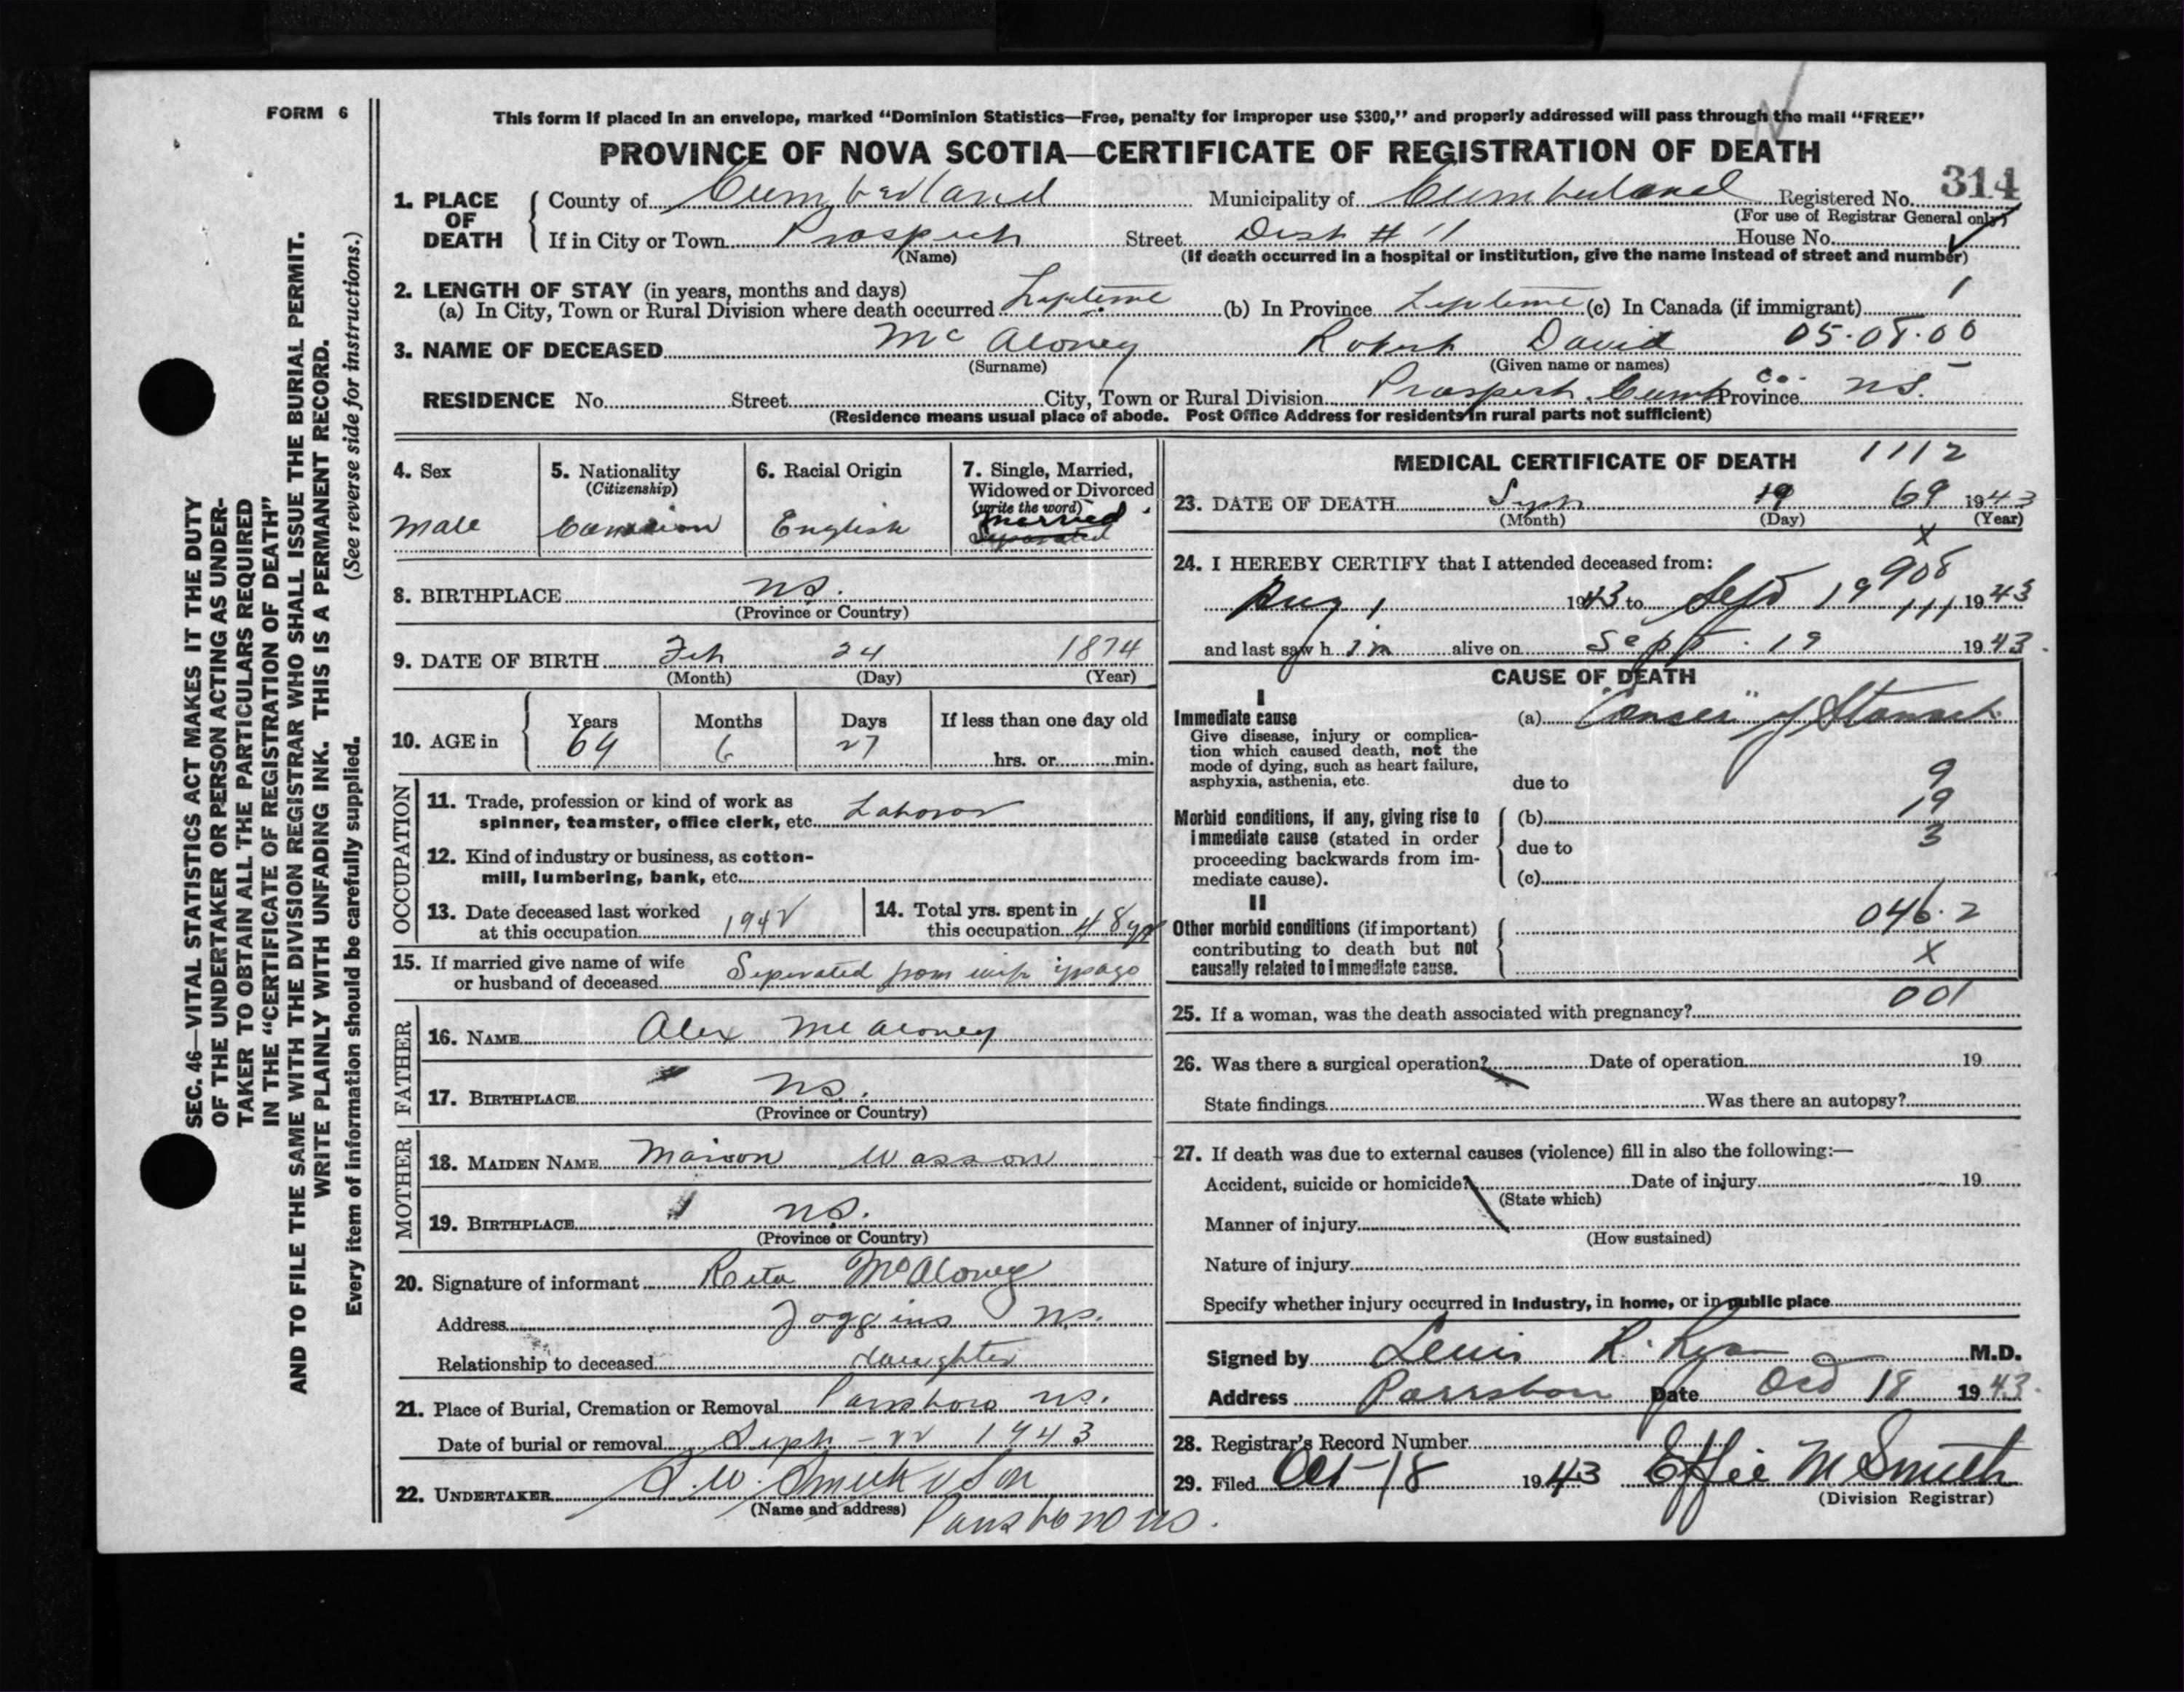 FORM 6
This form if placed in an envelope, marked “Dominion Statistics—Free, penalty for improper use $300,” and properly addressed will pass through the mail “FREE”
PROVINCE OF NOVA SCOTIA—CERTIFICATE OF REGISTRATION OF DEATH
314
1. PLACE OF DEATH County of Cumberland Municipality of Cumberland Registered No.
(For use of Registrar General only)
If in City or Town Prospect Street Dist # 11 House No.
(Name) (If death occurred in a hospital or institution, give the name instead of street and number)
2. LENGTH OF STAY (in years, months and days)
(a) In City, Town or Rural Division where death occurred Lifetime (b) In Province Lifetime (c) In Canada (if immigrant) 1
3. NAME OF DECEASED Mc Aloney Robert David 05.08.00
(Surname) (Given name or names)
RESIDENCE No. Street City, Town or Rural Division Prospect. Cumb Co. Province N.S.
(Residence means usual place of abode. Post Office Address for residents in rural parts not sufficient)
4. Sex
Male
5. Nationality
(Citizenship)
6. Racial Origin
English
7. Single, Married, Widowed or Divorced
(write the word)
Married
Separated
8. BIRTHPLACE N.S.
(Province or Country)
9. DATE OF BIRTH Feb 24 1874
(Month) (Day) (Year)
10. AGE in Years Months Days If less than one day old
69 6 27 hrs. or min.
OCCUPATION
11. Trade, profession or kind of work as spinner, teamster, office clerk, etc. Laboror
12. Kind of industry or business, as cotton-mill, lumbering, bank, etc.
13. Date deceased last worked at this occupation 1942
14. Total yrs. spent in this occupation 48 yrs
15. If married give name of wife or husband of deceased Seperated from wife yrs ago
FATHER
16. NAME Alex McAloney
17. BIRTHPLACE N.S.
(Province or Country)
MOTHER
18. MAIDEN NAME Marion Wasson
19. BIRTHPLACE N.S.
(Province or Country)
20. Signature of informant Reta McAloney
Address Joggins N.S.
Relationship to deceased daughter
21. Place of Burial, Cremation or Removal Parrsboro N.S.
Date of burial or removal Seph - 22 1943
22. UNDERTAKER & Son
(Name and address) Parrsboro N.S.
MEDICAL CERTIFICATE OF DEATH 1112
23. DATE OF DEATH Seph 19 69 1943
(Month) (Day) (Year)
x
24. I HEREBY CERTIFY that I attended deceased from:
908
Aug 1 1943 to Sept 19 111 1943
and last saw h im alive on Sept. 19 1943.
CAUSE OF DEATH
I
Immediate cause
Give disease, injury or complication which caused death, not the mode of dying, such as heart failure, asphyxia, asthenia, etc.
(a) "Canser" of Stomach
due to 9
19
Morbid conditions, if any, giving rise to immediate cause (stated in order proceeding backwards from immediate cause).
(b)
due to 3
(c)
II
Other morbid conditions (if important) contributing to death but not causally related to immediate cause.
046.2
x
001
25. If a woman, was the death associated with pregnancy?
26. Was there a surgical operation? Date of operation 19
State findings Was there an autopsy?
27. If death was due to external causes (violence) fill in also the following:—
Accident, suicide or homicide? Date of injury 19
(State which)
Manner of injury
(How sustained)
Nature of injury
Specify whether injury occurred in Industry, in home, or in public place
Signed by Lewis R. Ryan M.D.
Address Parrsboro Date Oct 18 1943.
28. Registrar's Record Number
29. Filed Oct-18 1943 Effie M Smith
(Division Registrar)
SEC. 46—VITAL STATISTICS ACT MAKES IT THE DUTY
OF THE UNDERTAKER OR PERSON ACTING AS UNDER-
TAKER TO OBTAIN ALL THE PARTICULARS REQUIRED
IN THE “CERTIFICATE OF REGISTRATION OF DEATH”
AND TO FILE THE SAME WITH THE DIVISION REGISTRAR WHO SHALL ISSUE THE BURIAL PERMIT.
WRITE PLAINLY WITH UNFADING INK. THIS IS A PERMANENT RECORD.
Every item of information should be carefully supplied. (See reverse side for instructions.)